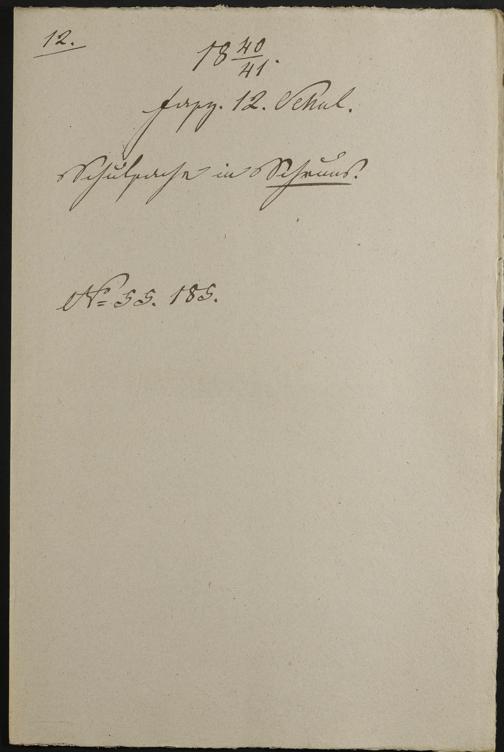 12.
18 40/41.
Fasz. 12. Schul.
Schulsache in Schruns.
No 55. 185.